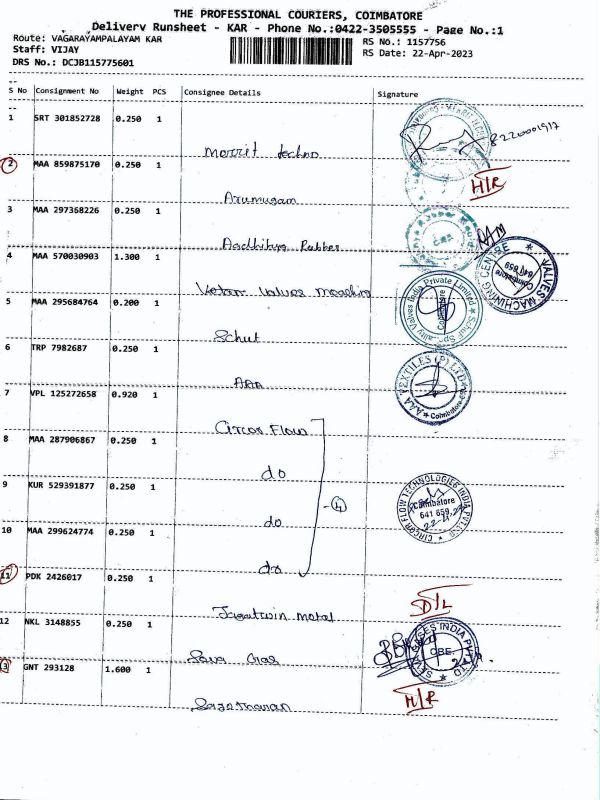 THE PROFESSIONAL COURIERS, COIMBATORE
Delivery Runsheet - KAR - Phone No.:0422-3505555 - Page No.:1
Route: VAGARAYAMPALAYAM KAR
RS No.: 1157756
Staff: VIJAY
RS Date: 22-Apr-2023
DRS No.: DCJB115775601
S No Consignment No Weight PCS Consignee Details Signature
1 SRT 301852728 0.250 1
8220001917
Morrit techno
2 MAA 859875170 0.250 1
H/R
Arumugam
3 MAA 297368226 0.250 1
Aadhitya Rubber
4 MAA 570030903 1.300 1
VALVES MACHINING CENTRE
Coimbatore
641 659
Valves
5 MAA 295684764 0.200 1
Speciality Valves India Private Limited
Coimbatore
Schut
6 TRP 7982687 0.250 1
AAA TEXTILES (P) LTD
Coimbatore
7 VPL 125272658 0.920 1
Circor Flow
8 MAA 287906867 0.250 1
do
9 KUR 529391877 0.250 1
4
CIRCOR FLOW TECHNOLOGIES INDIA PVT LTD
Coimbatore
641 659
do
10 MAA 299624774 0.250 1
do
11 PDK 2426017 0.250 1
D/L
12 NKL 3148855 0.250 1
INDIA PVT LTD
CBE.
13 GNT 293128 1.600 1
H/R